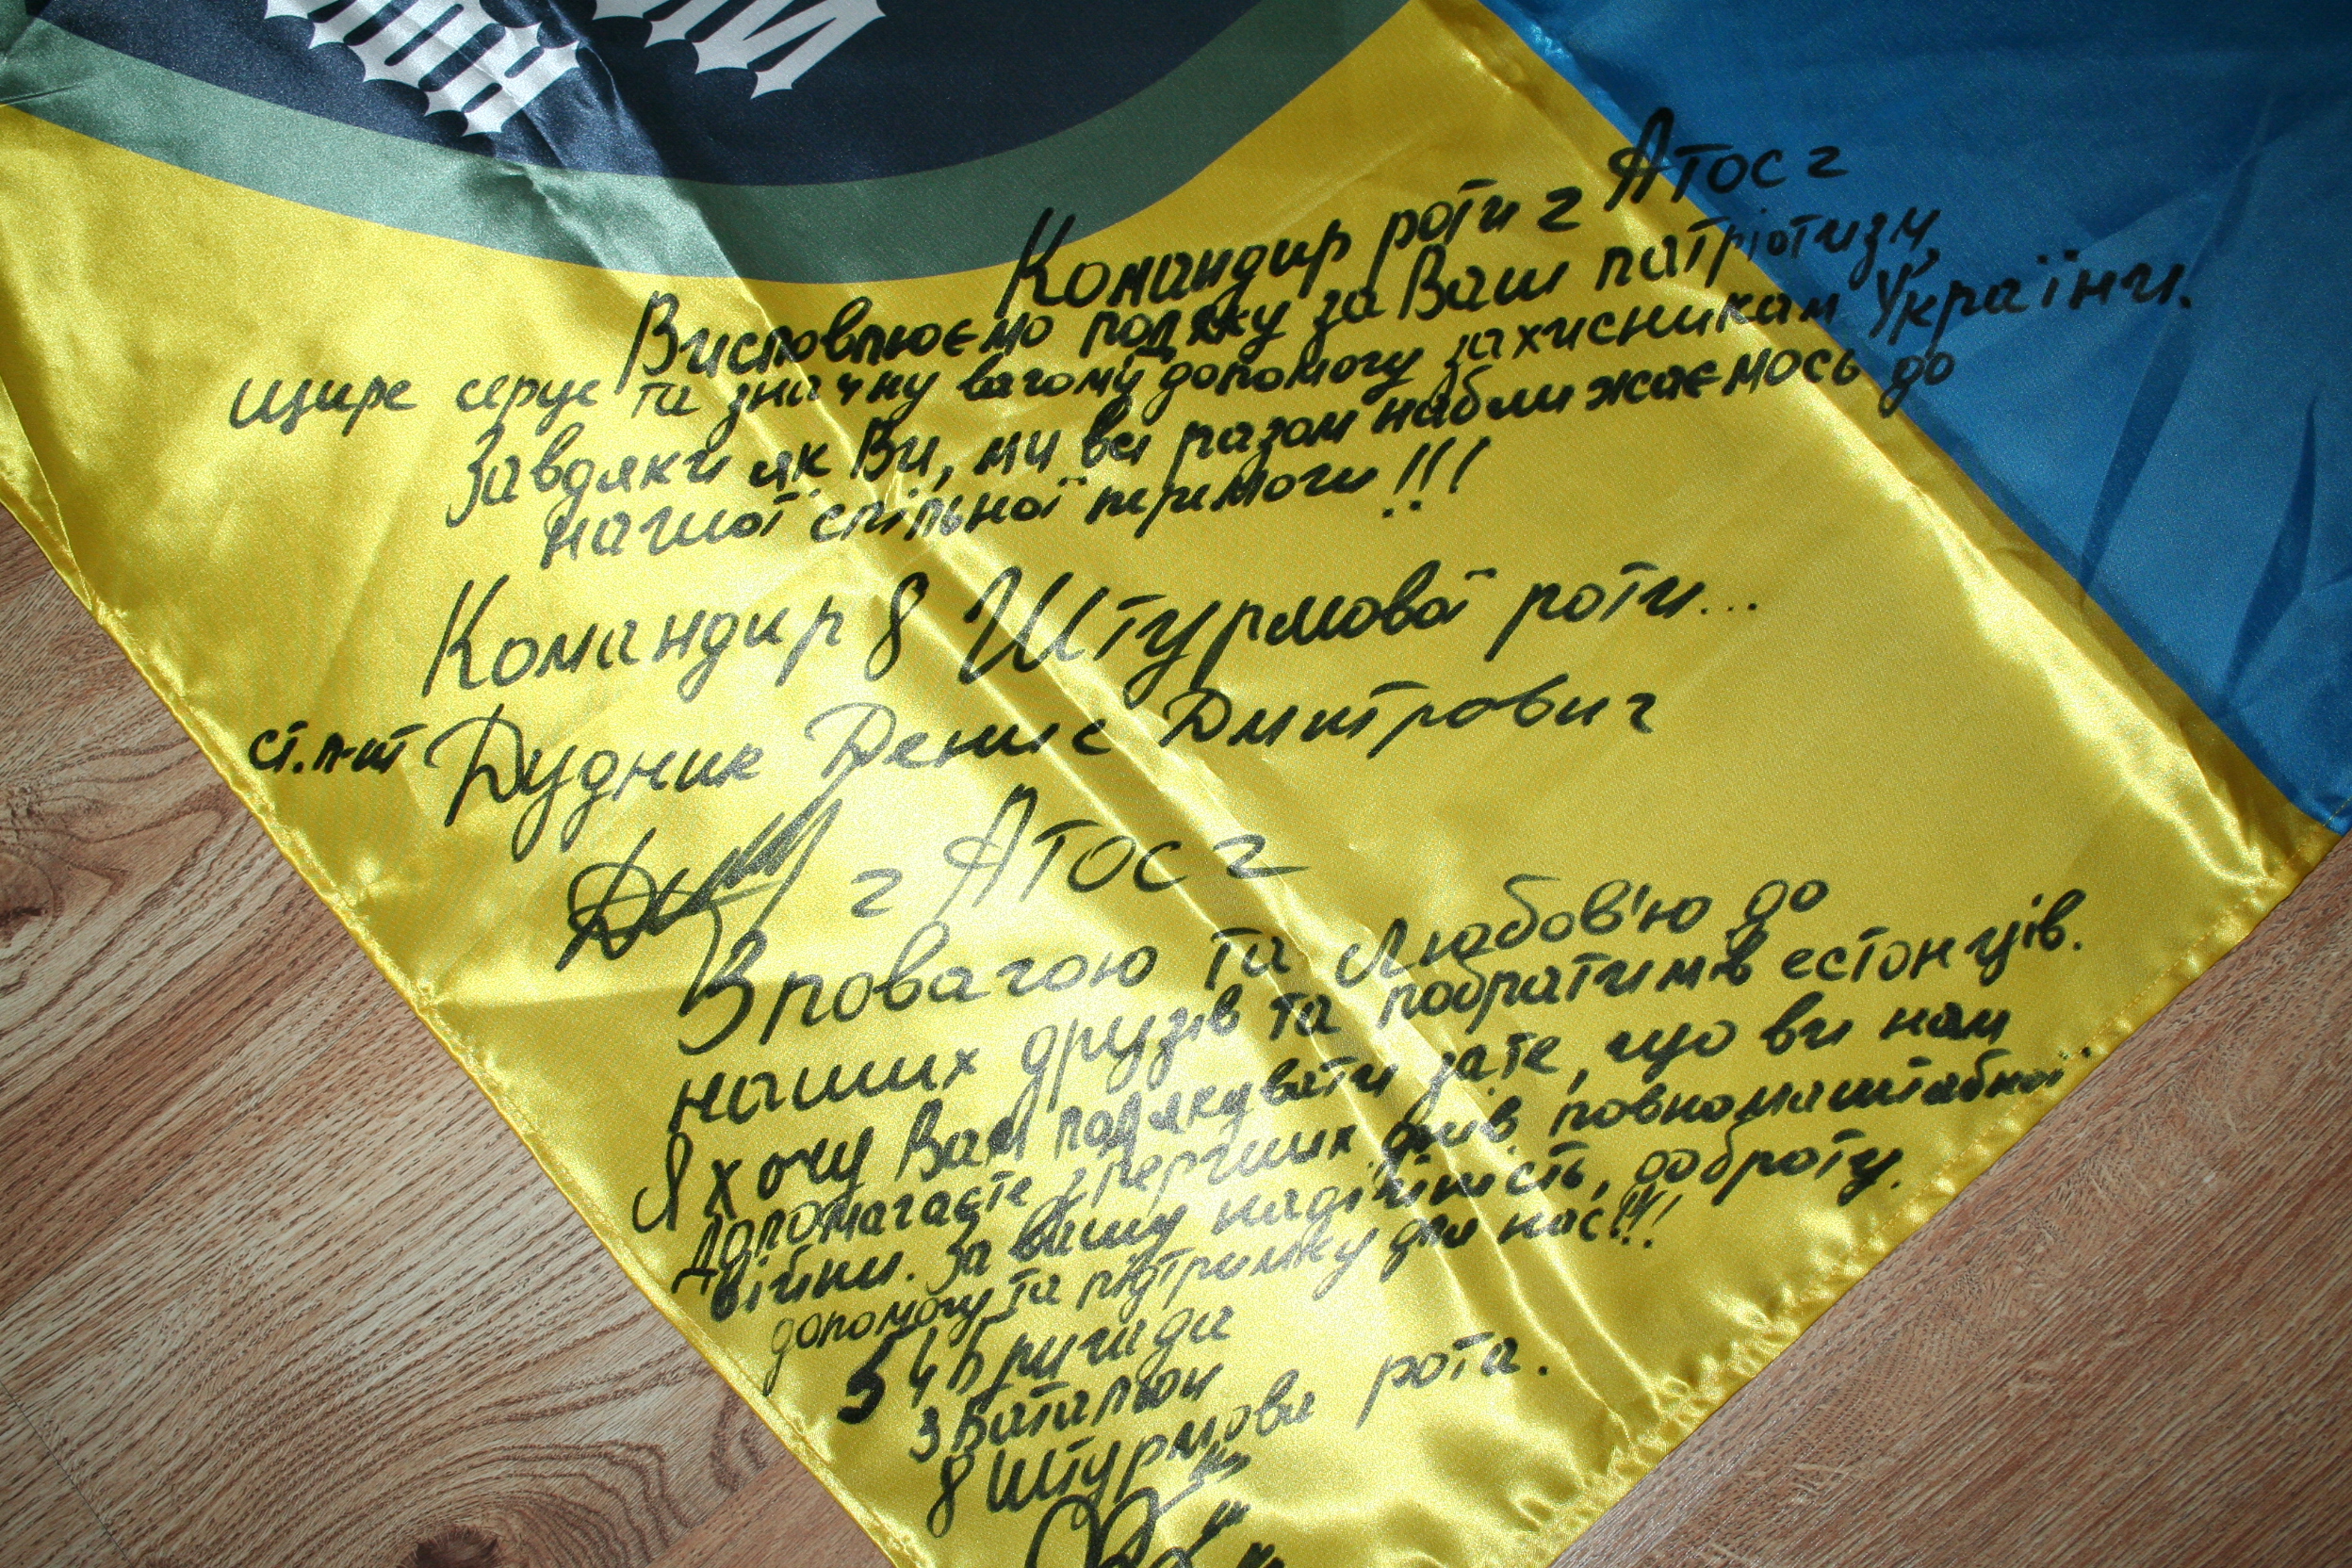 Командир роти г Атос г
Висловлюємо подяку за Ваш патріотизм,
щире серце та значну вагому допомогу захисникам України.
Завдяки як Ви, ми всі разом наближаємось до
нашої спільної перемоги!!!
Командир 8 Штурмової роти...
ст. л-т Дудник Денис Дмитрович
г Атос г
З повагою та Любов'ю до
наших друзів та побратимів естонців.
Я хочу Вам подякувати за те, що ви нам
допомагаєте з перших днів повномаштабної
війни. За вашу надійність, доброту.
допомогу та підтримку для нас!!!!
54 Бригада
3 Баталіон
8 Штурмова рота.